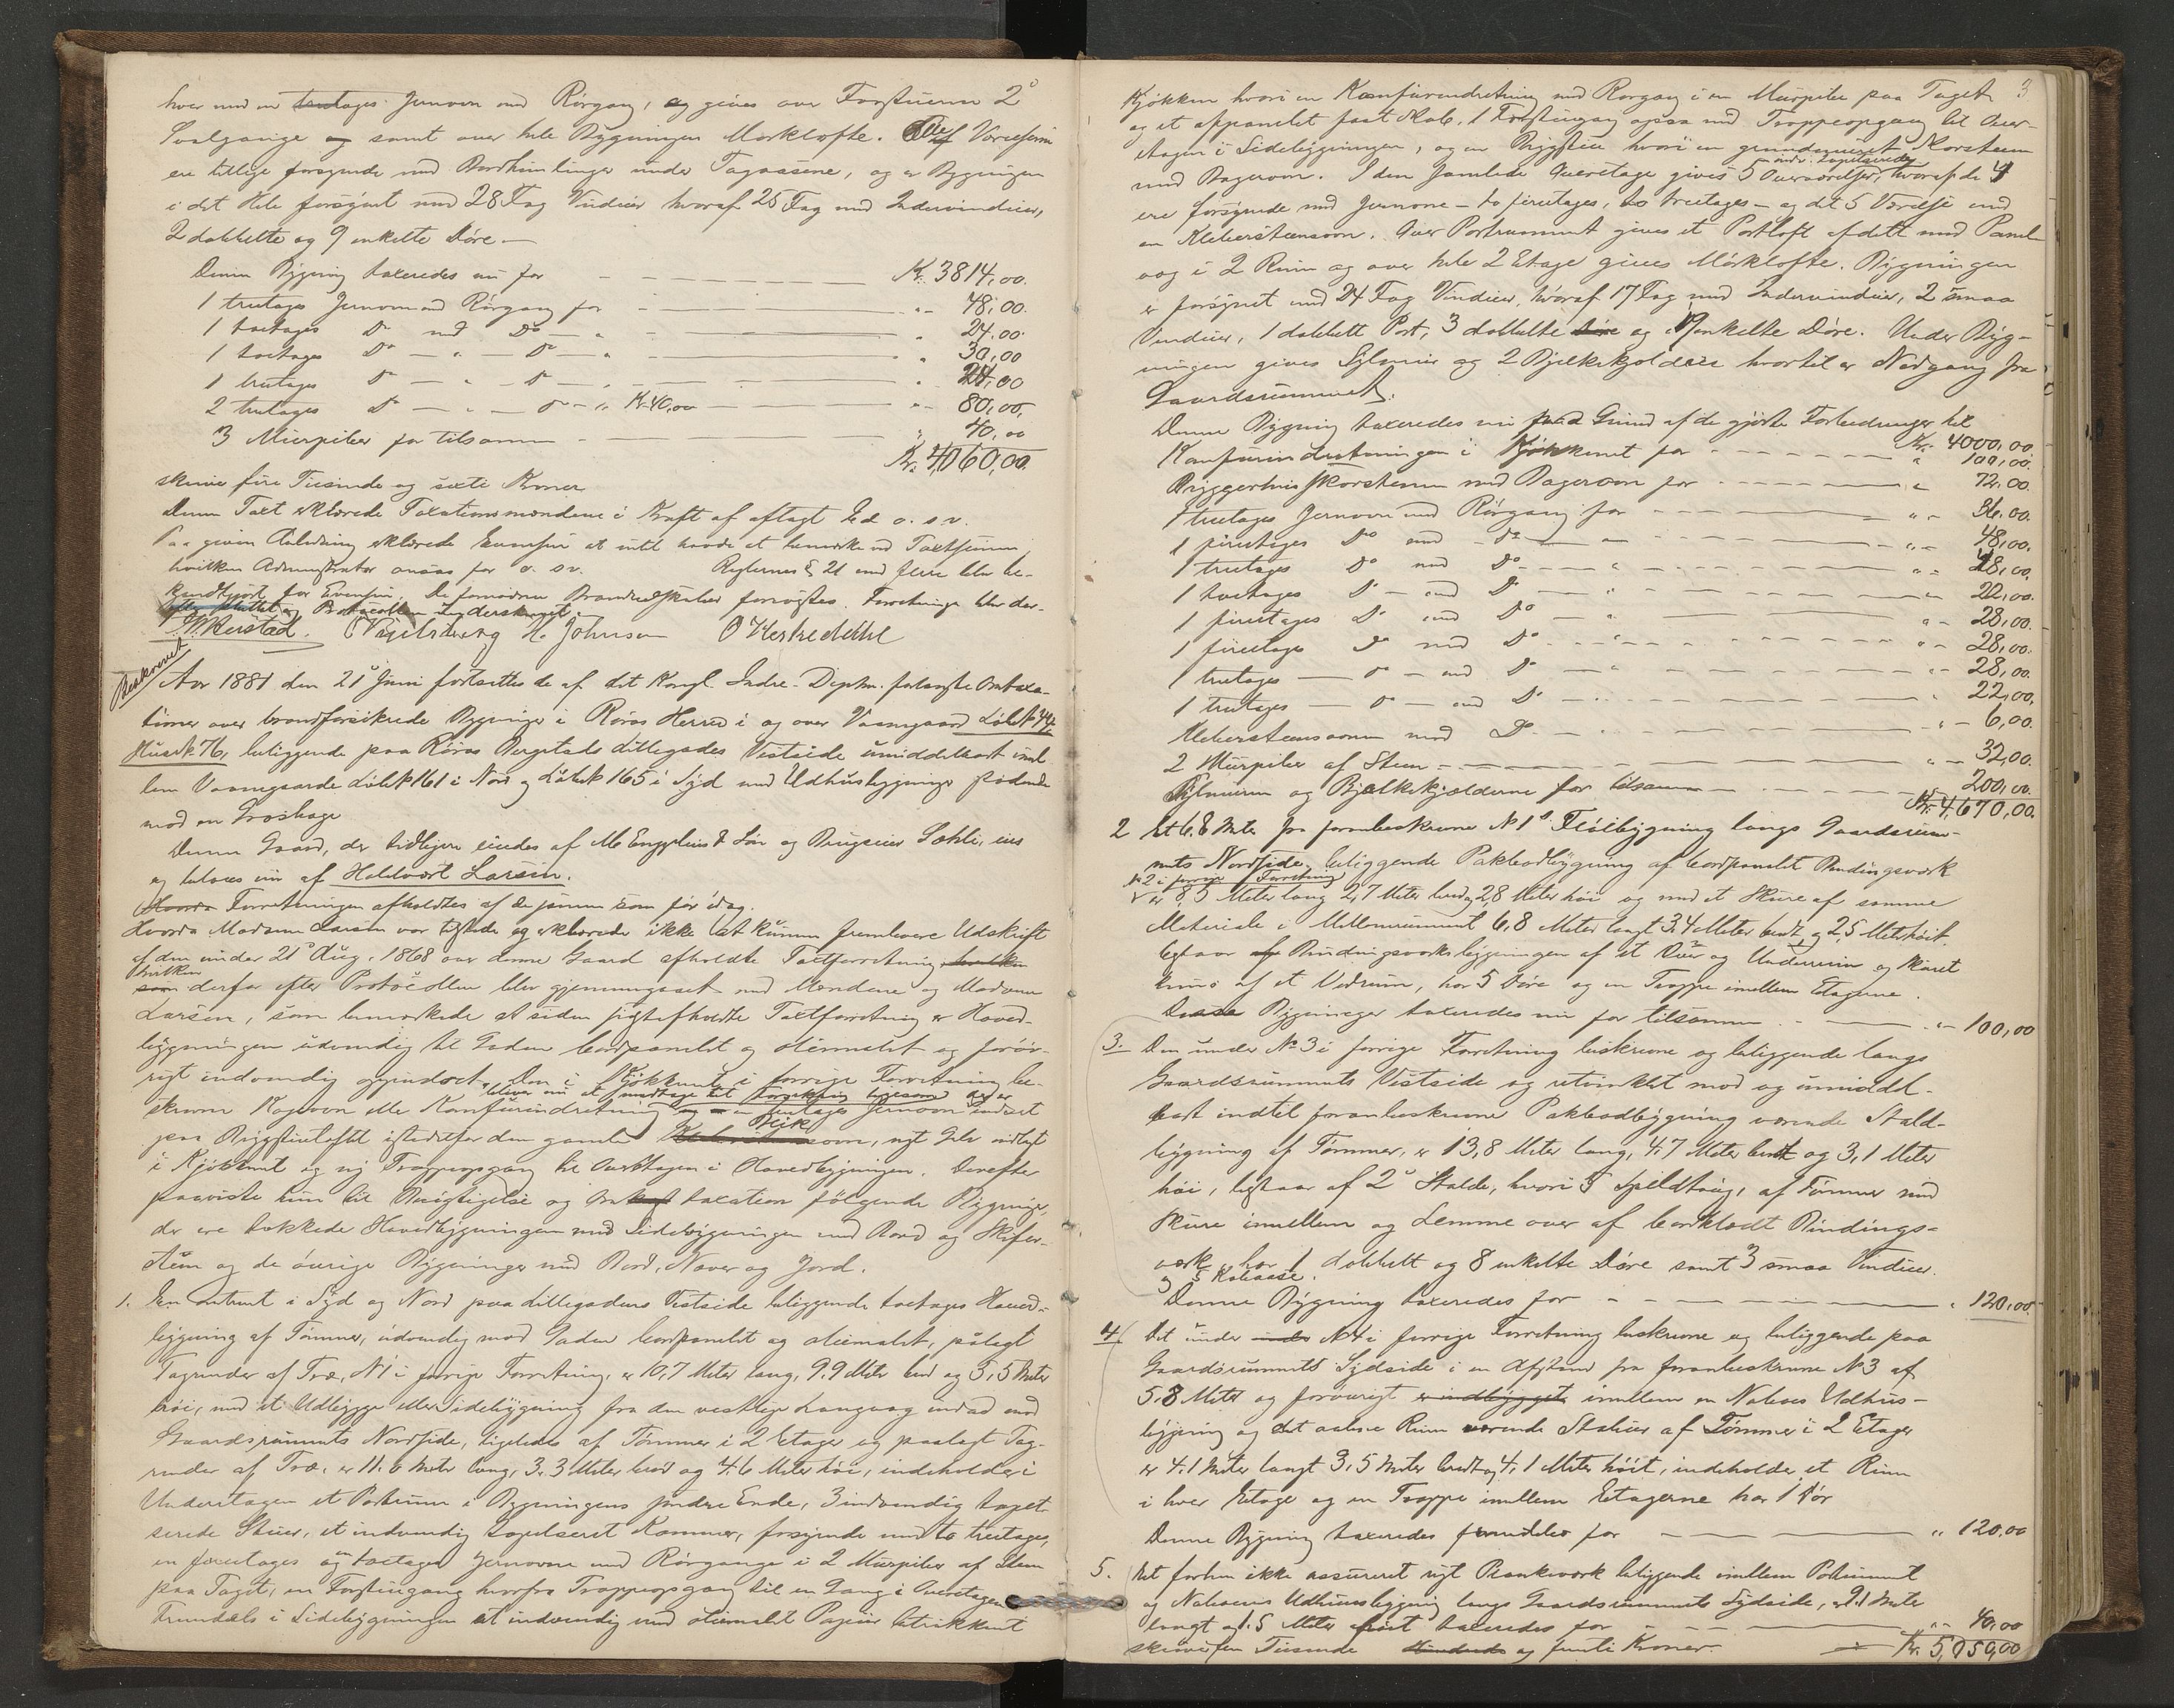 hver med en tretages Jernovn med Rørgang, og gives over Forstuerne 2de
Svalgange og samt over hele Bygningen Mørklofte. Værelserne
ere tillige forsynede med Bordhimlinger under Tagaasene, og er Bygningen
i det Hele forsynet med 28 Fag Vinduer hvoraf 25 Fag med Indervinduer,
2 dobbelte og 9 enkelte Døre. —
Denne Bygning taxeredes nu for — — — Kr. 3814,00.
1 tretages Jernovn med Rørgang for — — „ 48,00.
1 toetages Do med Do — „ — „ 24,00.
1 toetages Do — „ — Do — „ — „ 30,00
1 tretages Do — „ — Do — „ — „ 24,00
2 tretages Do — „ — Do — „ Kr 40,00 — „ 80,00.
3 Murpiber for tilsammen — — „ 40,00
Kr. 4,060,00.
skriver fire Tusinde og sexti Kroner
Denne Taxt erklærede Taxationsmændene i Kraft af aflagt Ed o. s. v.
Paa given Anledning erklærede Evensen at intet havde at bemærke ved Taxtsummen,
hvilken Administrator ansaa for o. s. v. Reglernes § 21 med flere blev be-
kendtgjort for Evensen. De fornødne Brandredskaber forevistes. Forretningen blev der-
efter sluttet og Protocollen underskreget.
Engelsberg H. Johnsen O Herkedahl
Beskrevet
Aar 1881 den 21de Juni fortsattes de af det Kongl. Indre-Deptm. forlangte Omtaxa-
tioner over brandforsikrede Bygninger i Røros Herred i og over Vaaningaard Løbe No 44
Huse No 76, beliggende paa Røros Bergstads Lillegades Vestside umiddelbart imel-
lem Vaaningaarde Løbe No 161 i Nord og Løbe No 165 i Syd med Udhusbygninger stødende
mod en Grøshage
Denne Gaard, der tidligere eiedes af M Engzelius & Søn og Brugseier Sæhli, eies
og beboes nu af Haldvort Larsen.
Forretningen afholdtes af de samme som før idag.
Hvorda Madame Larsen var tilstede og erklærede ikke at kunne fremlevere Udskrift
af den under 21de Aug. 1868 over denne Gaard afholdte Taxtforretning, hvilken
hvilken som derfor efter Protocollen blev gjennemgaaet med Mændene og Madame
Larsen, som bemærkede at siden sidstafholdte Taxtforretning er Hoved-
bygningen udvendig til Gaden bordpanelet og oliemalet og forøv-
rigt indvendig oppudset. Den i Kjøkkenet i forrige Forretning be-
bliver nu at medtage til Forsikring ligesom der er
skrevne Kogeovn eller Komfurindretning og en Jernovn indsat
paa Brygstueloftet istedetfor den gamle ovn, nyt Gulv indlagt
i Kjøkkenet og ny Trappeopgang til Overetagen i Hovedbygningen. Derefter
paaviste hun til Besigtigelse og Omtaxation følgende Bygninger,
der ere tækkede Hovedbygningen med Sidebygningen med Bord og Skifer-
sten og de øvrige Bygninger med Bord, Næver og Jord.
1. En omtrent i Syd og Nord paa Lillegadens Vestside beliggende toetages Hoved-
bygning af Tømmer, udvendig mod Gaden bordpanelet og oliemalet, pålagt
Tagrender af Træ, No 1 i forrige Forretning, er 10,7 Meter lang, 9.9 Meter bred og 5,5 Meter
høi, med et Udbygge eller Sidebygning fra den vestlige Langvæg indad med
Gaardsrummets Nordside, ligeledes af Tømmer i 2 Etager og paalagt Tag-
render af Træ, er 11.6 Meter lang, 3.3 Meter bred og 4.6 Meter høi, indeholder i
Underetagen et Portrum i Bygningens søndre Ende, 3 indvendig tapet-
serede Stuer, et indvendig tapetseret Kammer, forsynede med to tretages,
en firetages og en toetages Jernovne med Rørgange i 2 Murpiber af Sten
paa Taget, en Forstuegang hvorfra Trappeopgang til en Gang i Overetagen
Fremdeles i Sidebygningen et indvendig med oliemalet Papiir betrukket
3
Kjøkken hvori en Komfurindretning med Rørgang i en Murpibe paa Taget
og et oppanelet fast Skab, 1 Forstuegang ogsaa med Trappeopgang til Over-
etagen i Sidebygningen, og en Brygstue hvori en grundmuret Skorsten
med Bagerovn. I den samlede Overetage gives 5 indv. tapetserede Overværelser, hvoraf de 4
ere forsynede med Jernovne — to firetages, to tretages — og det 5 Værelse med
en Klæberstensovn. Over Portrummet gives et Portloft afdelt med Panel-
væg i 2 Rum og over hele 2 Etage gives Mørklofte. Bygningen
er forsynet med 24 Fag Vinduer, hvoraf 17 Fag med Indervinduer, 2 smaa
Vinduer, 1 dobbelt Port, 3 dobbelte Døre og 19 enkelte Døre. Under Byg-
ningen gives Sylmur og 2 Bjelkekjeldere hvortil er Nedgang fra
Gaardsrummet.
Denne Bygning taxeredes nu paa Grund af de gjorte Forbedringer til
Kr. 4000,00
Komfurindretningen i Kjøkkenet for — — „ 100,00.
Bryggerhusskorstenen med Bagerovn for — — „ 72,00.
1 tretages Jernovn med Rørgang for — — „ 36,00.
1 firetages Do med Do — — „ 48,00.
1 tretages Do med Do — — „ 28,00.
1 toetages Do — med Do — — „ 22,00.
1 firetages Do med Do — — „ 28,00.
1 firetages Do med Do — — „ 28,00.
1 tretages — Do — med Do — — „ 28,00.
1 tretages — Do — med Do — — „ 22,00.
Kleberstensovnen med Do — — „ 6,00.
2 Murpiber af Sten — — „ 32,00.
Sylmuren og Bjælkekjælderne for tilsammen — — „ 200,00.
Kr. 4,670,00.
2 Et 6.8 Meter fra foranbeskrevne No 1s Fløibygning langs Gaardsrum-
mets Nordside, beliggende Pakbodbygning af bordpanelet Bindingsværk
No 2 i forrige Forretning
er 8,5 Meter lang 2,7 Meter bred og 2,8 Meter høi og med et Skure af samme
Materiale i Mellemrummet 6,8 Meter langt 3.4 Meter bredt og 2,5 Meter høit.
bestaar af Bindingsværksbygningen af et Over og Underrum og Skuret
kuns af et Vedrum, har 5 Døre og en Trappe imellem Etagerne.
Disse Bygninger taxeredes nu for tilsammen — — „ 100,00
3. Den under No 3 i forrige Forretning beskrevne og beliggende langs
Gaardsrummets Vestside og retvinklet mod og umiddel-
bart indtil foranbeskrevne Pakbodbygning værende Stald-
bygning af Tømmer, er 13,8 Meter lang, 4.7 Meter bredt og 3,1 Meter
høi, bestaar af 2de Stalde, hvori 5 Spildtoug, af Tømmer med
Skure imellem og Lemme over af bordklædt Bindings-
værk, har 1 dobbelt og 8 enkelte Døre samt 3 smaa Vinduer.
og 5 Kobaase.
Denne Bygning taxeredes for — — „ 120,00
4 Det under No 4 i forrige Forretning beskrevne og beliggende paa
Gaardsrummets Sydside i en Afstand fra foranbeskrevne No 3 af
5.8 Meter og forøvrigt er indbygget imellem en Naboes Udhus-
bygning og det aabne Rum værende Stabur af Tømmer i 2 Etager
er 4.1 Meter langt 3,5 Meter bredt og 4,1 Meter høit, indeholder et Rum
i hver Etage og en Trappe imellem Etagerne har 1 Dør
Denne Bygning taxeredes fremdeles for — — „ 120,00
5. Det forhen ikke assureret nyt Plankeværk beliggende imellem Portrummet
og Naboens Udhusbygning langs Gaardsrummets Sydside, er 9.1 Meter
langt og 1.5 Meter høit taxeredes for — — „ 40,00
skriver fem Tusinde Hundrede og femti Kroner. — Kr. 5,050,00